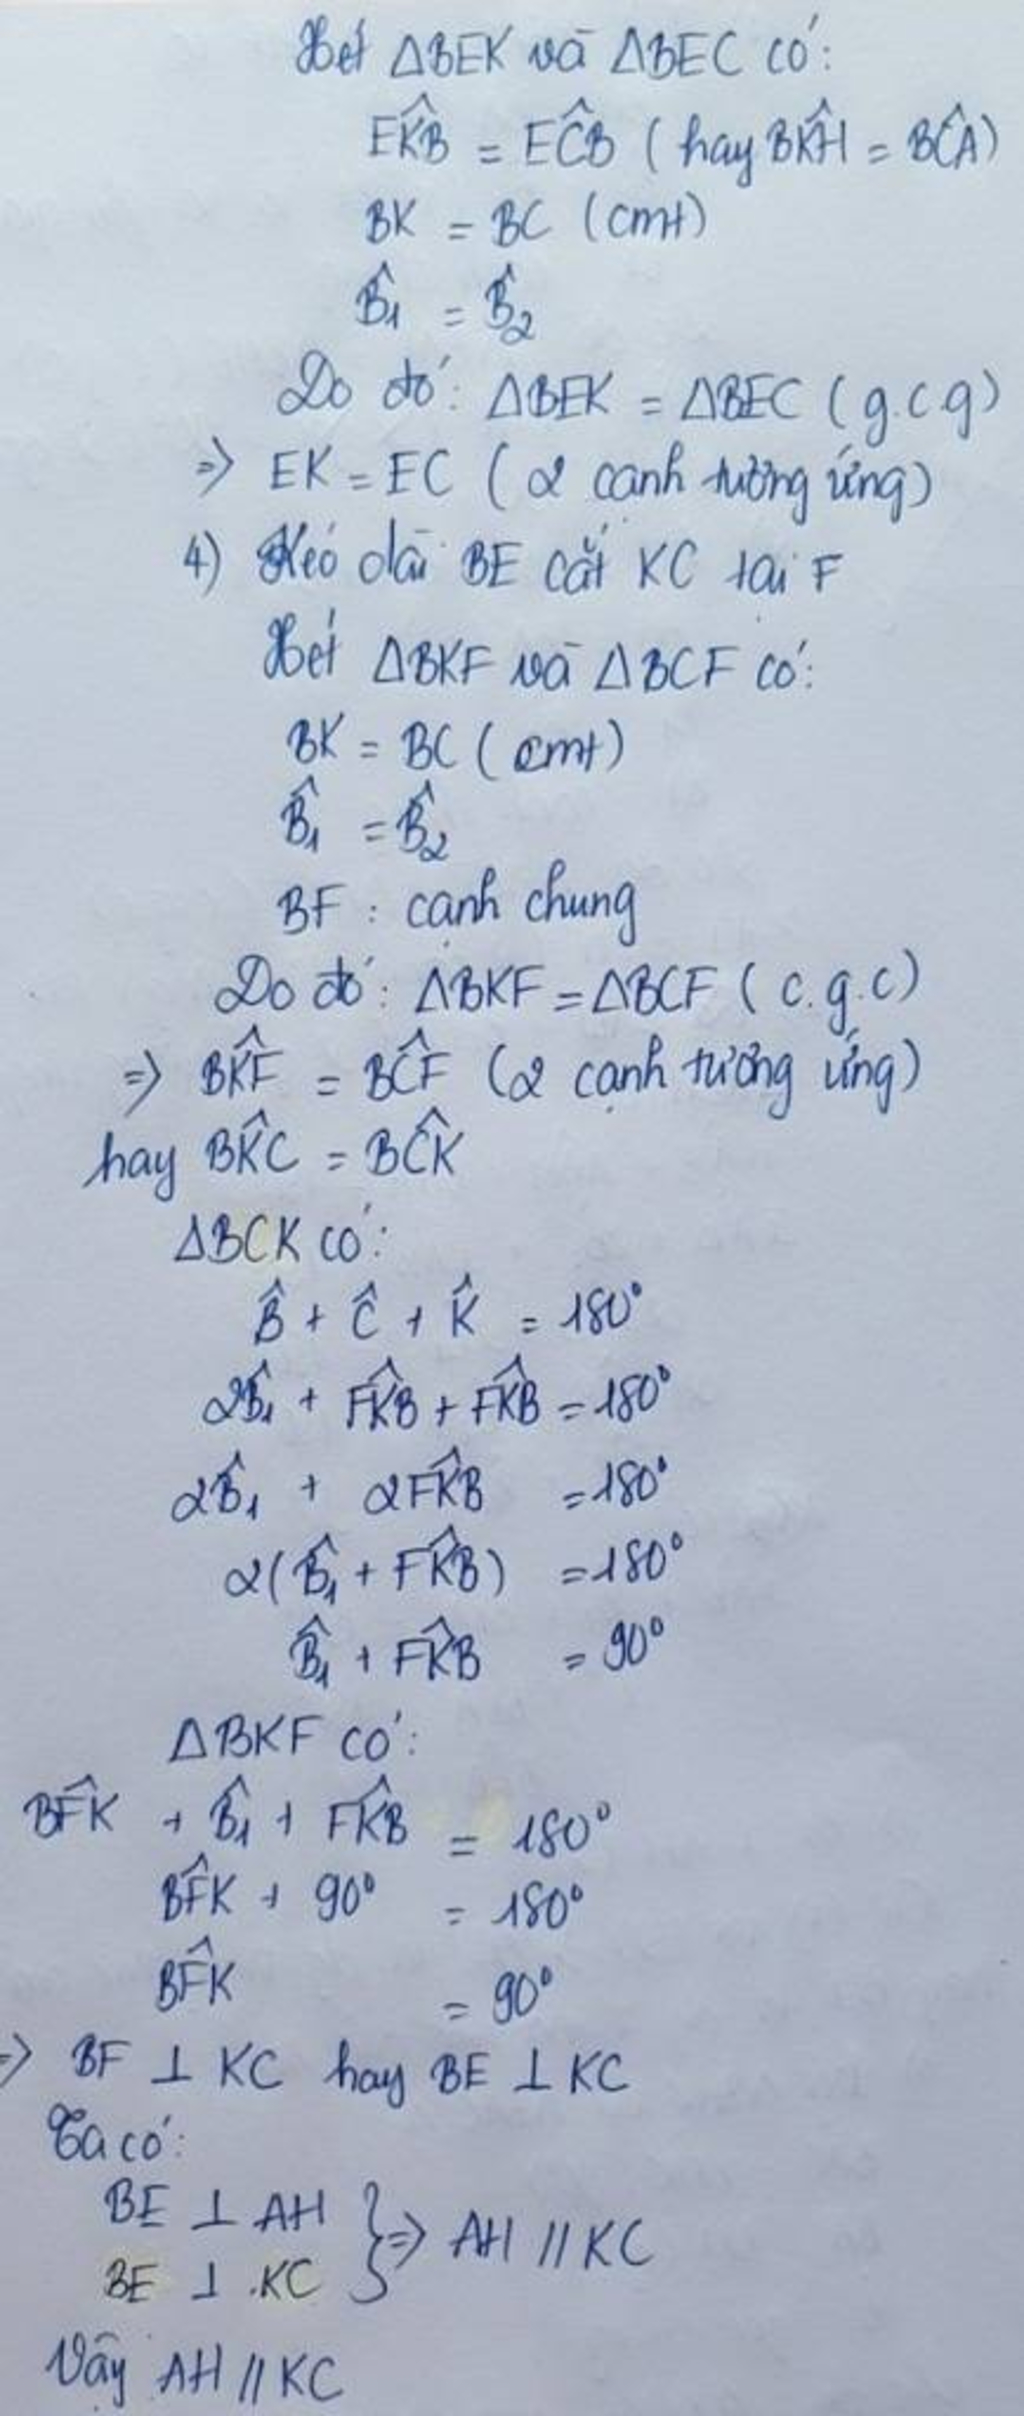 Xét ΔBEK và ΔBEC có:
EK̂B = EĈB ( hay BK̂H = BĈA)
BK = BC (cmt)
B̂₁ = B̂₂
Do đó: ΔBEK = ΔBEC ( g.c g)
=> EK = EC ( 2 cạnh tương ứng)
4) Kéo dài BE cắt KC tại F
Xét ΔBKF và ΔBCF có:
BK = BC ( cmt)
B̂₁ = B̂₂
BF : cạnh chung
Do đó: ΔBKF = ΔBCF ( c.g.c)
=> BK̂F = BĈF (2 cạnh tương ứng)
hay BK̂C = BĈK
ΔBCK có:
B̂ + Ĉ + K̂ = 180°
2B̂₁ + FK̂B + FK̂B = 180°
2B̂₁ + 2FK̂B = 180°
2(B̂₁ + FK̂B) = 180°
B̂₁ + FK̂B = 90°
ΔBKF có:
BF̂K + B̂₁ + FK̂B = 180°
BF̂K + 90° = 180°
BF̂K = 90°
=> BF ⊥ KC hay BE ⊥ KC
Ta có:
BE ⊥ AH } => AH // KC
BE ⊥ KC
Vậy AH // KC